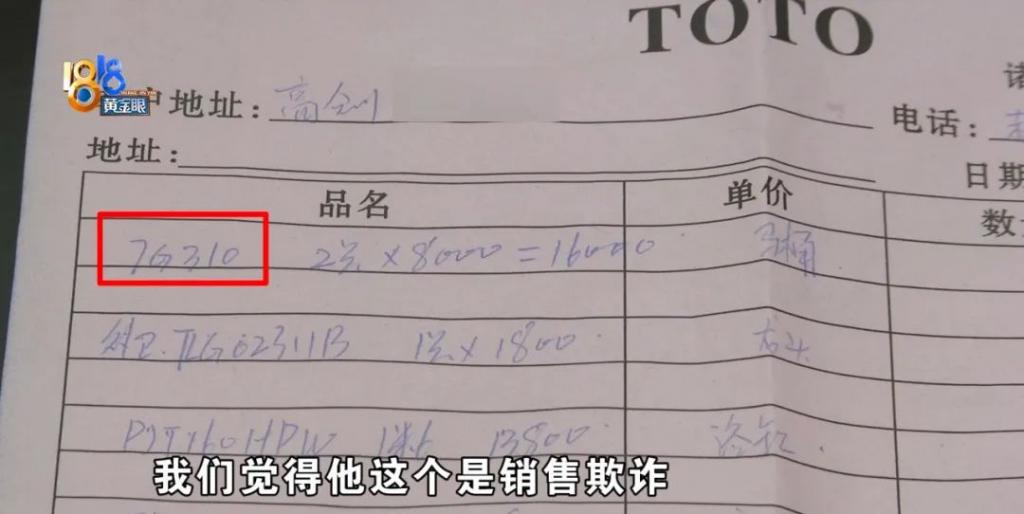 TOTO
1818
黄金眼
户地址：高剑
电话：
地址：
日期
品名 单价 数
7G310 2只×8000=16000 马桶
TLG02311B 1只×1800 龙头
PJY1604HPW 13800 浴缸
我们觉得他这个是销售欺诈